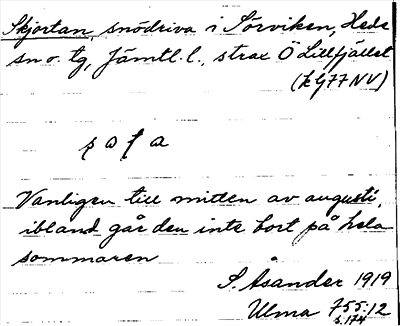 Skjortan, snödriva i Sörviken, Hede
sn o. tg, Jämtl. l., strax Ö Lillfjället
(k G77 NV)
Vanligen till mitten av augusti,
ibland går den inte bort på hela
sommaren
S. Åsander 1919
Ulma 755:12
s. 174